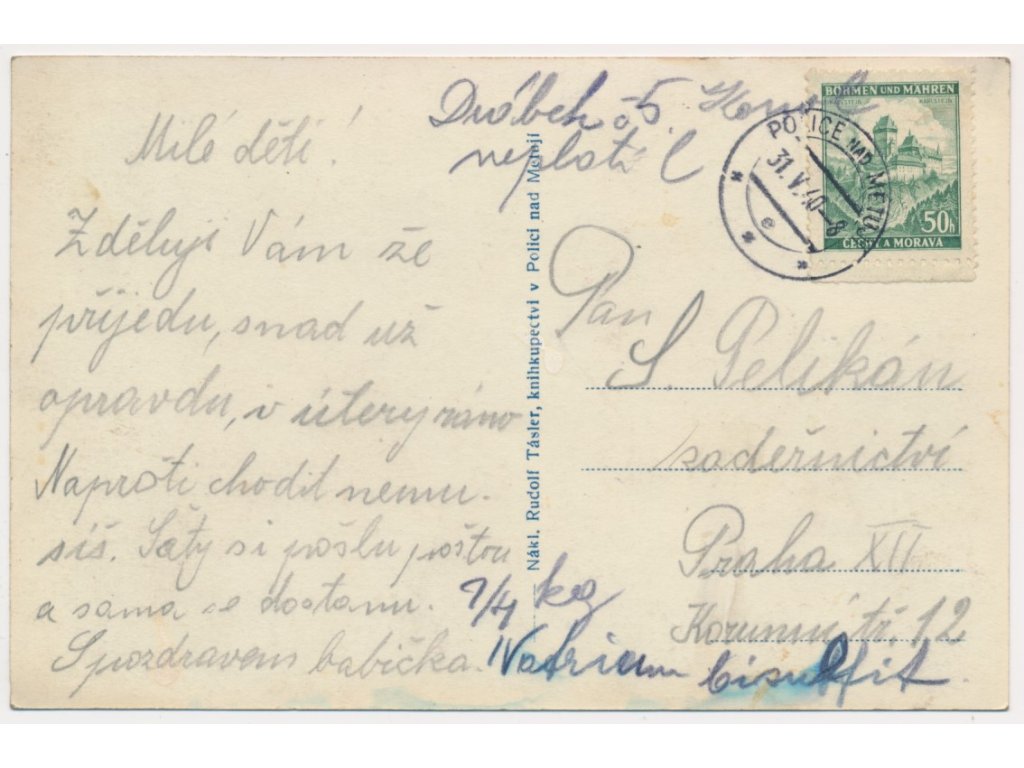 Milé děti!
Zděluji Vám že
přijedu, snad už
opravdu, v úterý ráno
Naproti chodit nemu-
síš. Šaty si pošlu poštou
a sama se dostanu.
S pozdravem babička.
Nákl. Rudolf Tásler, knihkupectví v Polici nad Metují
Drábek 5
neplatí
BÖHMEN UND MÄHREN
KARLŠTEJN KARLSTEIN
50h
ČECHY A MORAVA
POLICE NAD METUJÍ
31.V.40-8
e
Pan
S. Pelikán
kadeřnictví
Praha XII
Korunní tř. 12
1/4 kg
Natrium bisulfit.